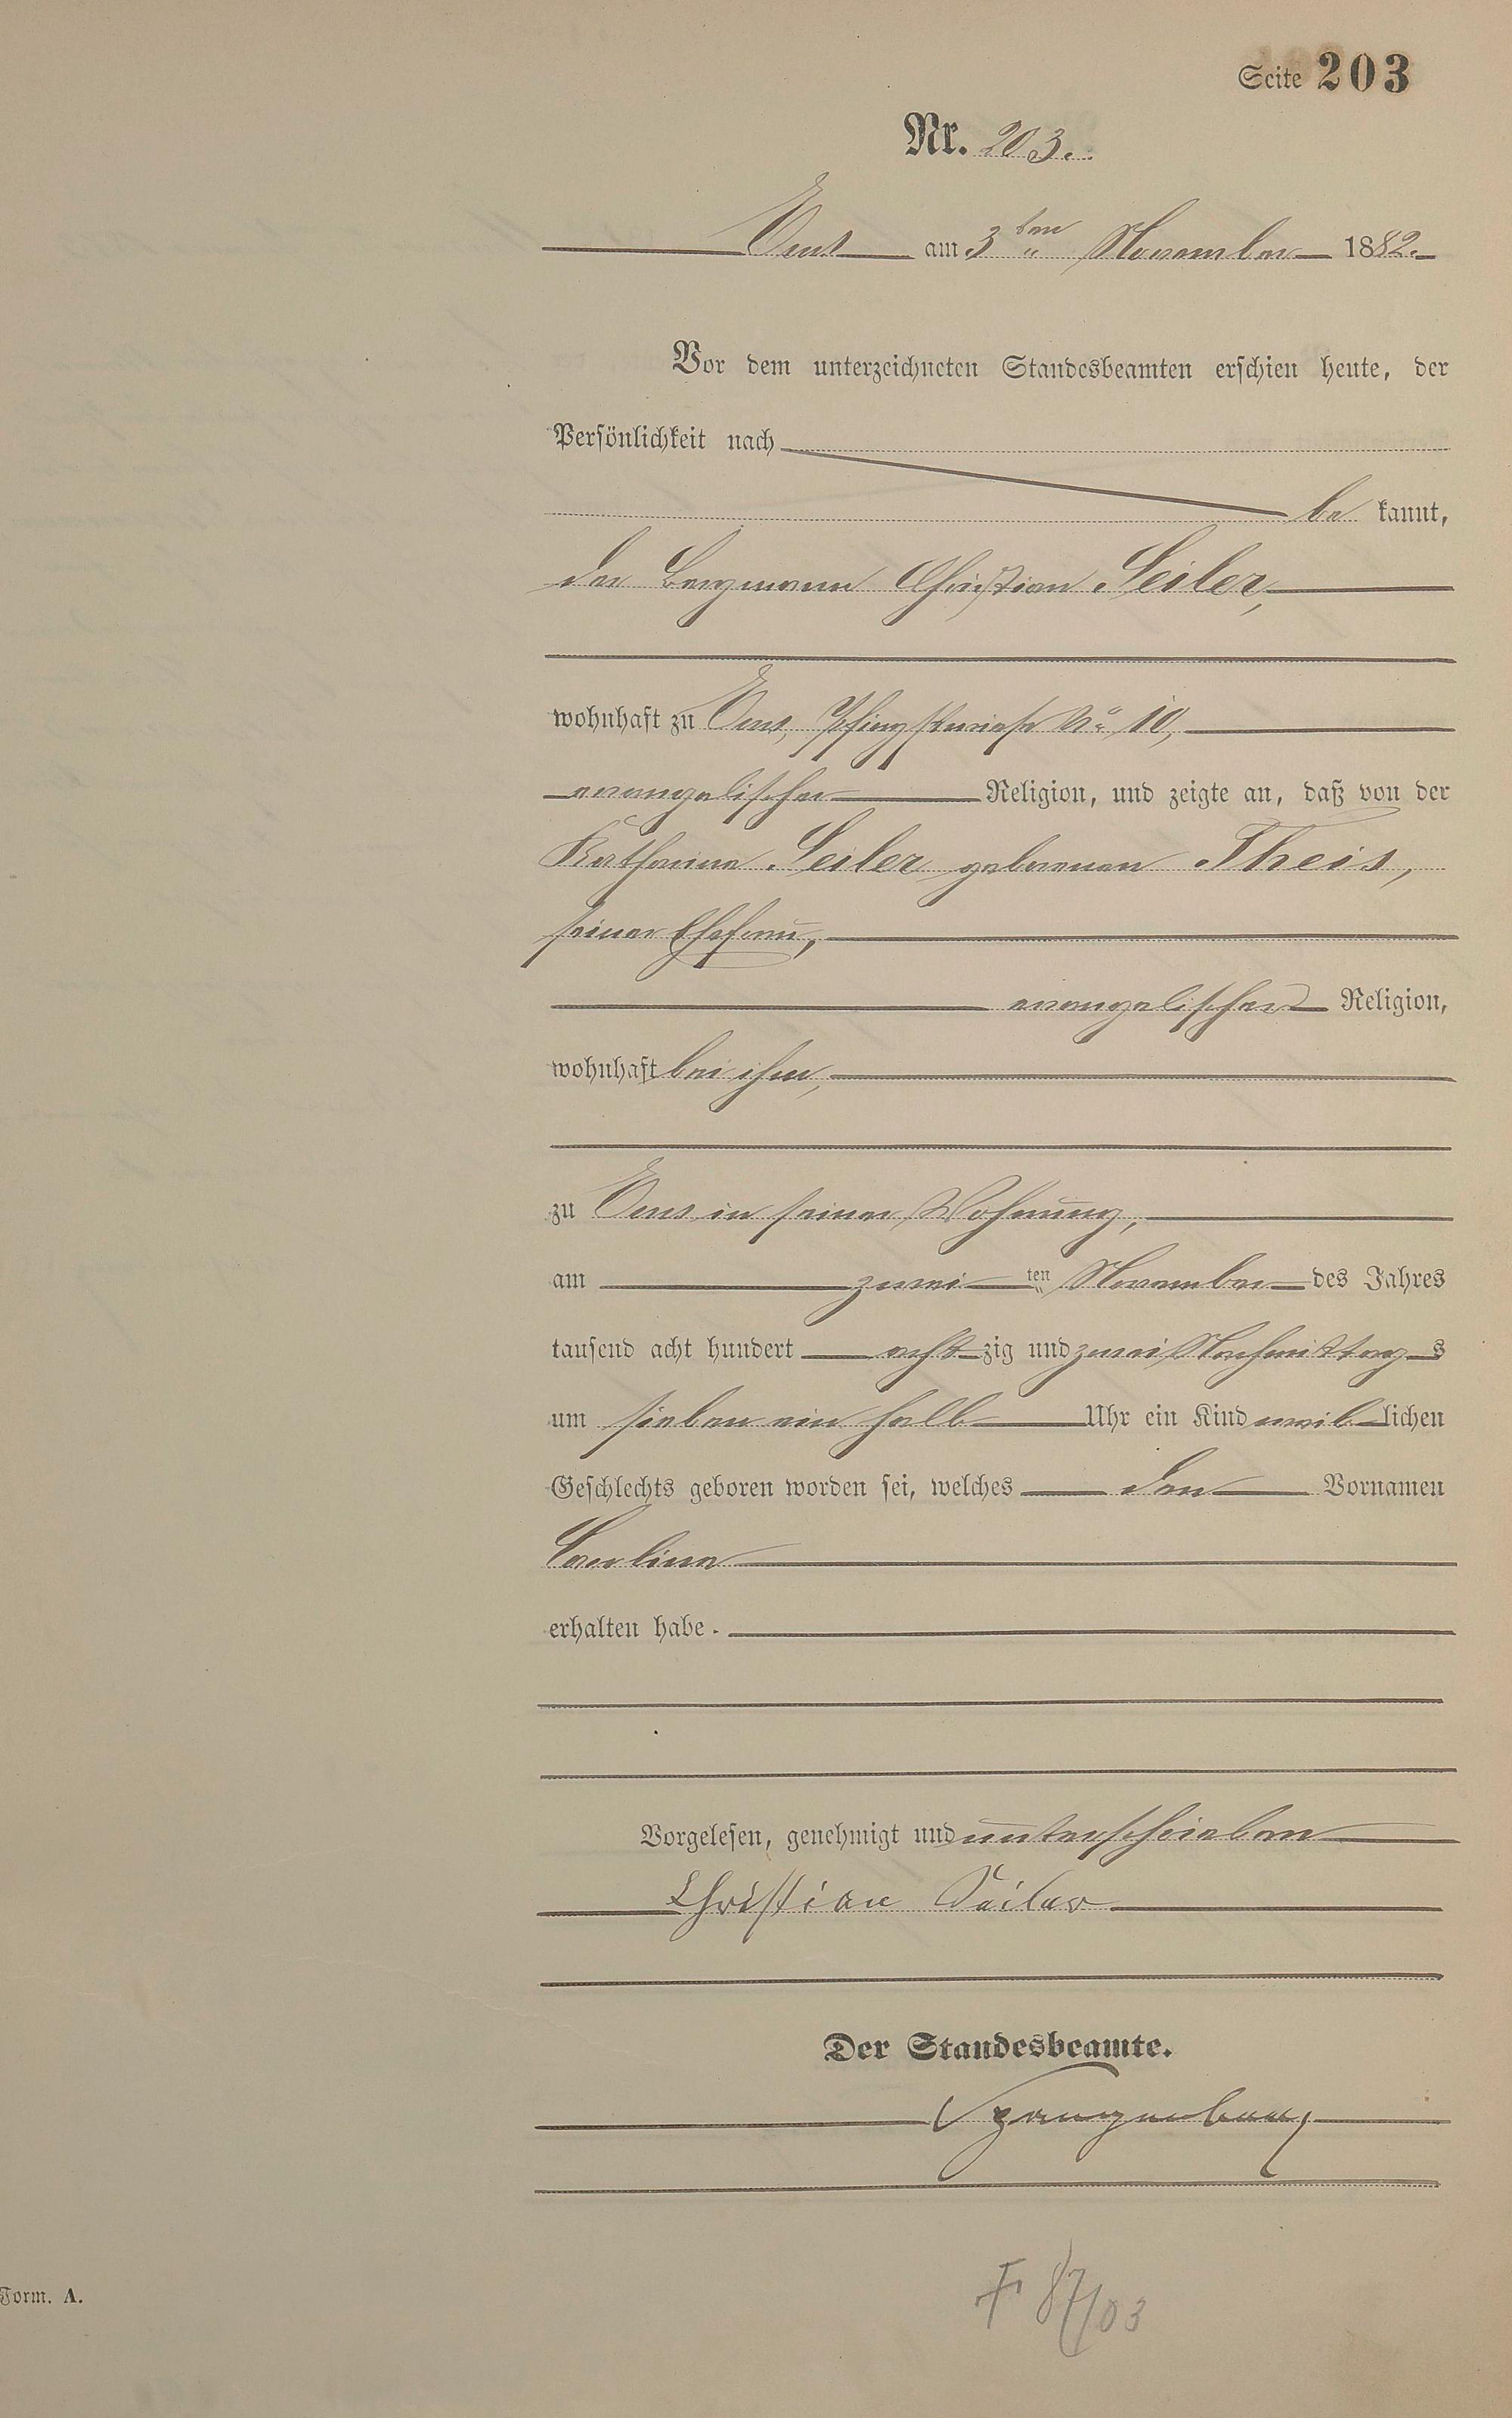 Seite 203
Nr. 203.
Ems am 3ten November 1882.
Vor dem unterzeichneten Standesbeamten erschien heute, der
Persönlichkeit nach
be kannt,
der Bergmann Christian Seiler,
wohnhaft zu Ems, Pfingstwiese No 10,
evangelischer Religion, und zeigte an, daß von der
Katharina Seiler geborenen Theis,
seiner Ehefrau,
evangelischer Religion,
wohnhaft bei ihm,
zu Ems in seiner Wohnung,
am zwei ten November des Jahres
tausend acht hundert acht zig und zwei Nachmittag s
um sieben ein halb Uhr ein Kind weib lichen
Geschlechts geboren worden sei, welches den Vornamen
Carolina
erhalten habe.
Vorgelesen, genehmigt und unterschrieben
Christian Seiler
Der Standesbeamte.
Spangenberg
Form. A.
F 87/03